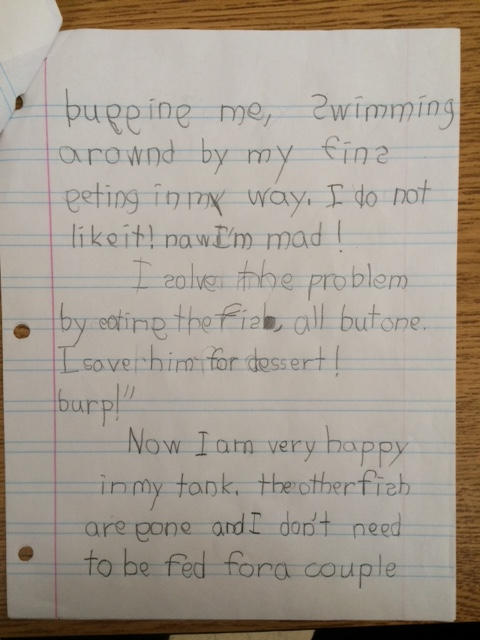 bugging me, Swimming
arownd by my fins
geting in my way. I do not
like it! naw I'm mad!
I solve the problem
by eating the fish, all but one.
I save him for dessert!
burp!"
Now I am very happy
in my tank. the other fish
are gone and I don't need
to be fed for a couple